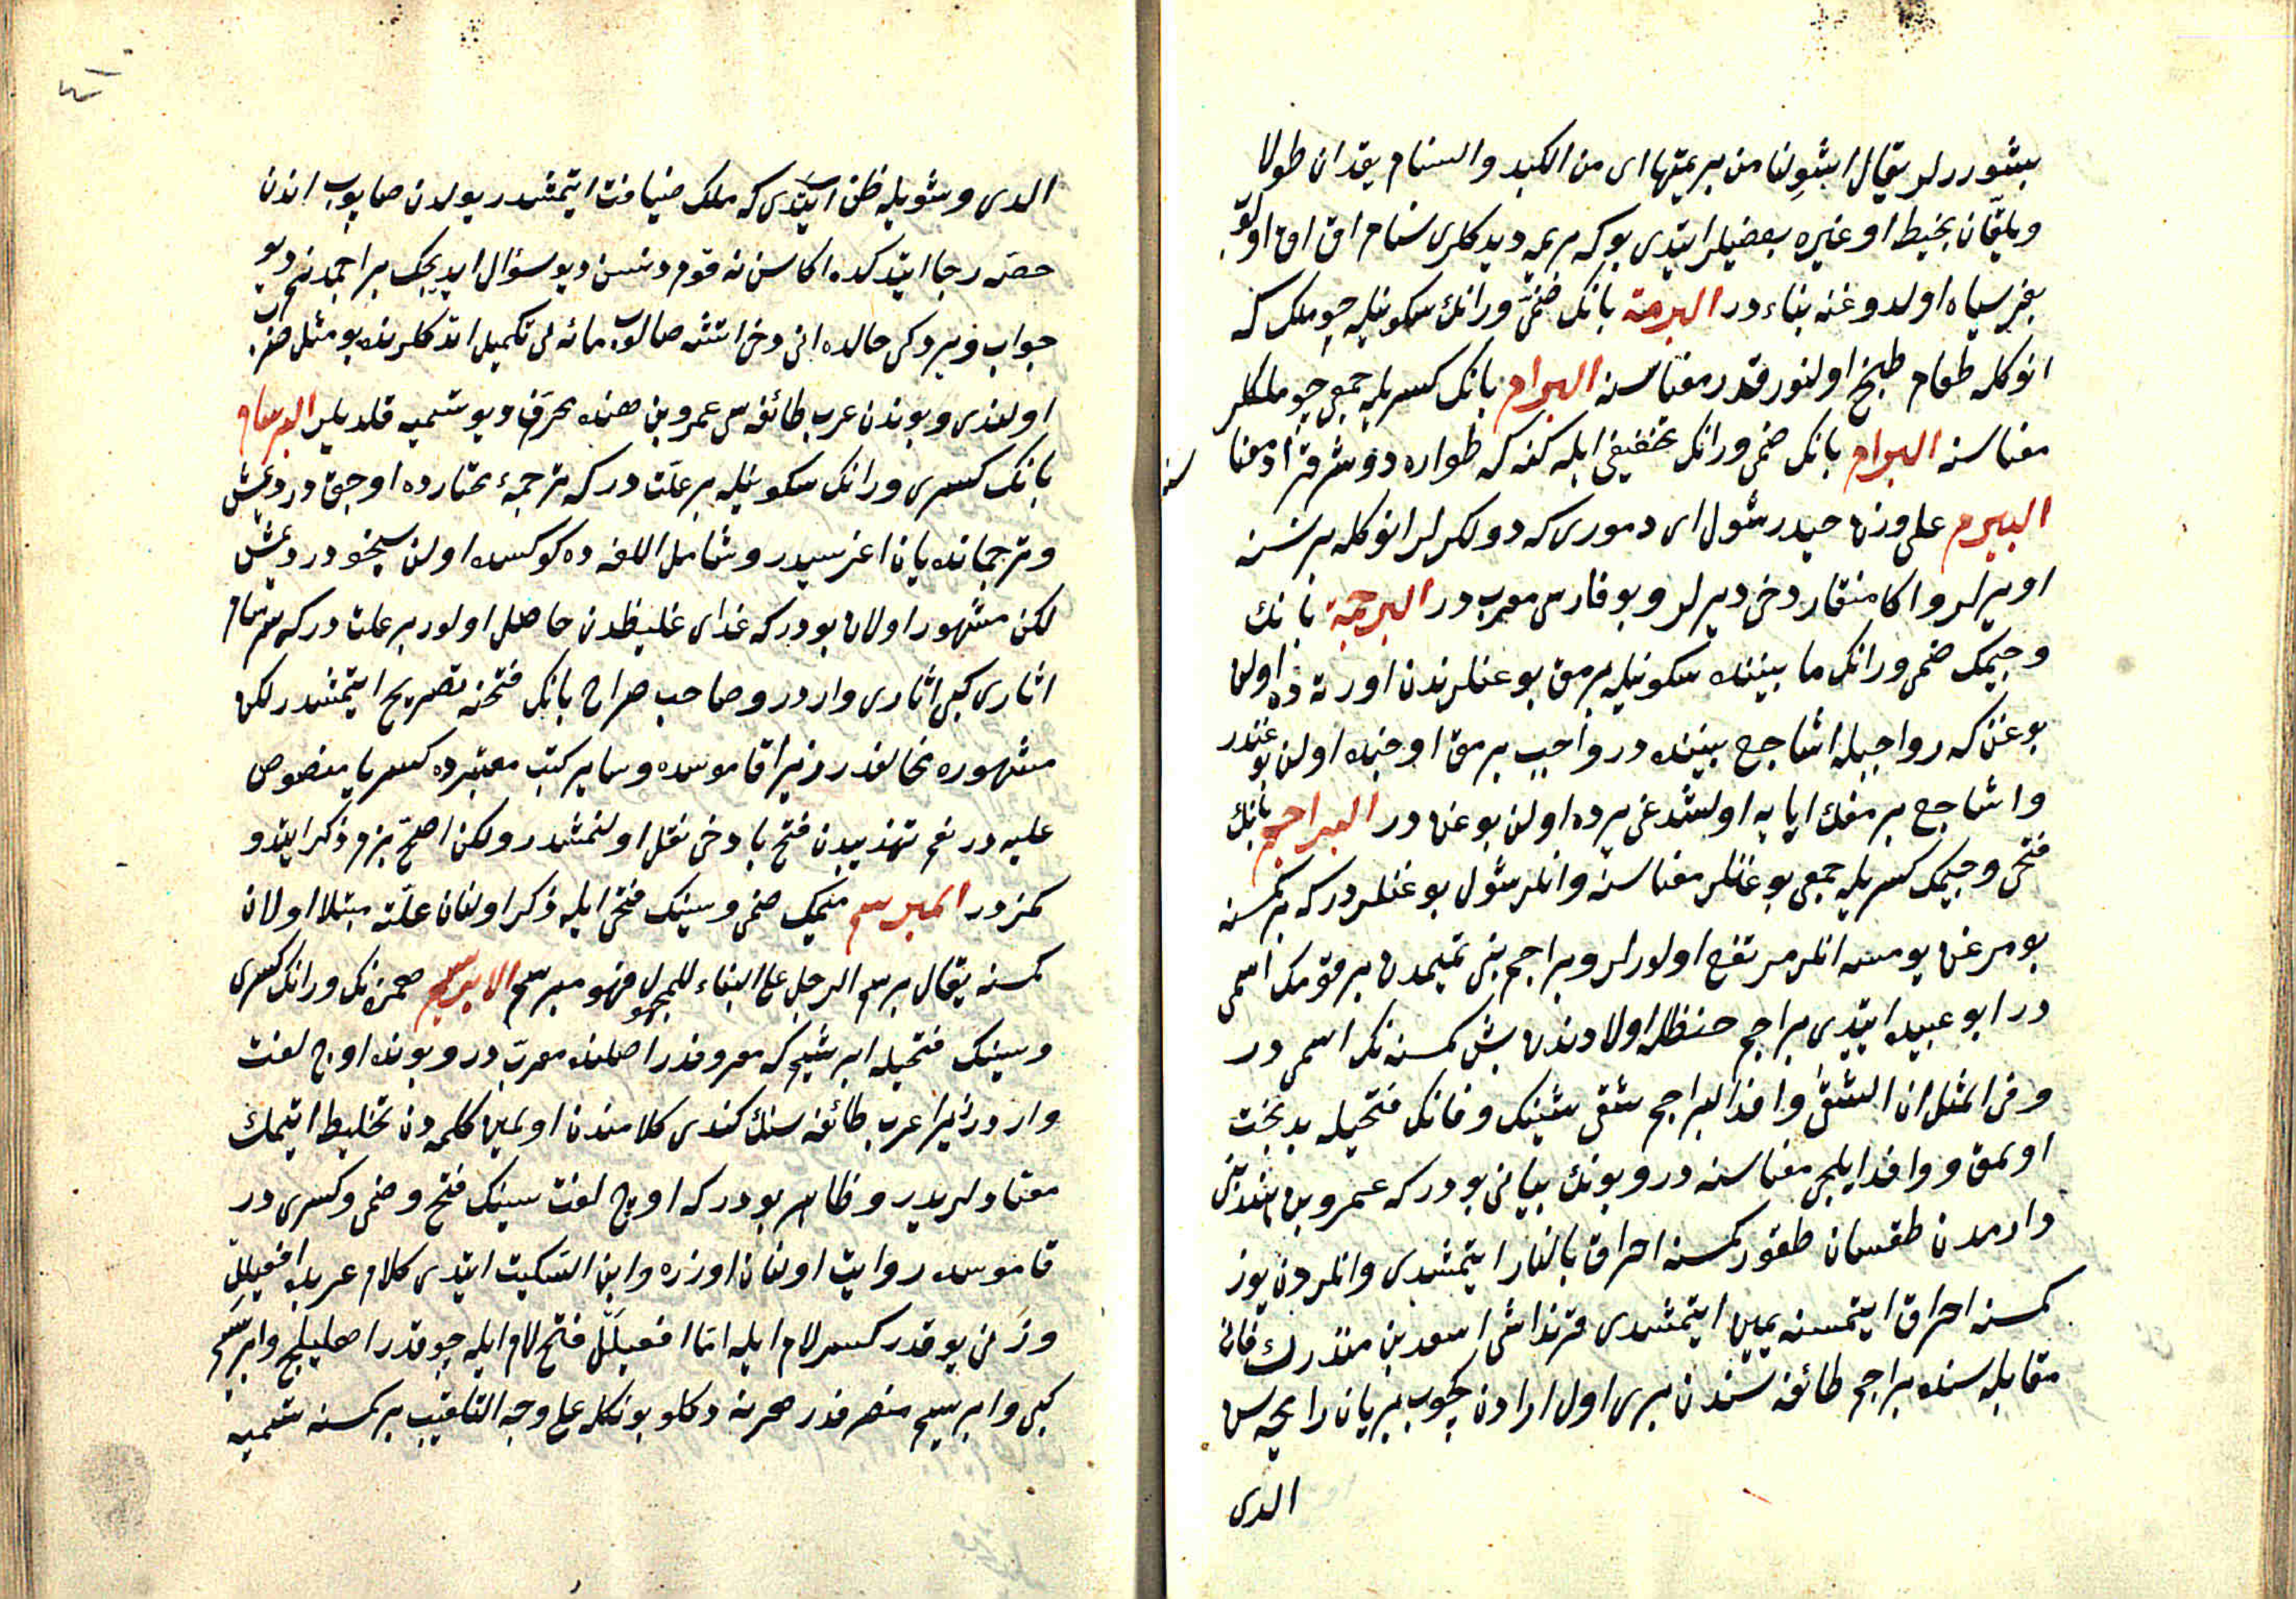 بشوررلر يقال اشوِلنا من بريمتها اى من الكبد والسنام يقدان طولا
ويلفّان بخيط او غيره بعضيلر ايتدى بوكه بريمه ديدكلرى سنام اق اق اولوب
بغر سياه اولدوغنه بناء در البرمة بانك ضمّى ورانك سكونيله چوملك كه
انوكله طعام طبخ اولنور قدر معناسنه البرام بانك كسريله جمعى چوملكلر
معناسنه البرام بانك ضمى ورانك تخفيفى ايله كنه كه طواره دوشر قراد معنا
سنه
البيرم على وزن حيدر شول اى دمورى كه دولكرلر انوكله بر نسنه
اويرلر واكا منقار دخى ديرلر وبو فارسى معرب در البرجمة بانك
وجيمك ضمى ورانك ما بيننده سكونيله برمق بوغنلرندن اورته ده اولن
بوغن كه رواجبله اشاجع بيننده در رواجب برمق اوجنده اولن بوغندر
واشاجع برمغك ايايه اولشدغى يرده اولن بوغن در البراجم بانك
فتحى وجيمك كسريله جمعى بوغنلر معناسنه وانلر شول بوغنلردر كه بر كمسنه
يومرغن يومسه انلر مرتفع اولورلر وبراجم بنى تميمدن بر قومك اسمى
در ابو عبيده ايتدى براجم حنظله اولادندن بش كمسنه نك اسمى در
وفى المثل ان الشقىَ وافد البراجم شقى شينك وفانك فتحيله بدبخت
اولمق ووافد ايلچى معناسنه در وبونك بيانى بودر كه عمرو بن هند بنى
دارمدن طقسان طقوز كمسنه احراق بالنار ايتمشدى وانلردن يوز
كمسنه احراق ايتمسنه يمين ايتمشدى قرنداشى اسعد بن منذرك قانى
مقابله سنده براجم طائفه سندن برى اول ارادن كچوب بريان رايحه سن
الدى
الدى وشويله ظن ايتدى كه ملك ضيافت ايتمشدر يولدن صاپوب اندن
حصّه رجا ايتدكده اكا سن نه قومدنسن ديو سؤال ايديجك براجمدنم ديو
جواب ويردكى حالده انى دخى اتشه صالوب مائه لى تكميل اتدكلرنده بو مثل ضرب
اولندى وبوندن عرب طائفه سى عمرو بن هنده محرّق ديو تسميه قلديلر البرسام
بانك كسرى ورانك سكونيله بر علّت در كه ترجمۀ مختارده اوجق در ديمش
وترجمانده يان اغريسيدر وشامل اللغه ده كوكسده اولن سيخو در ديمش
لكن مشهور اولان بودر كه غداى غليظدن حاصل اولور بر علت در كه سرسام
اثارى كبى اثارى واردر وصاحب صراح بانك فتحنه تصريح ايتمشدر لكن
مشهوره مخالفدر زيرا قاموسده وساير كتب معتبرده كسر با منصوص
عليه در نعم تهذيبدن فتح با دخى نقل اولنمشدر ولكن اصحّ بزم ذكر ايتدو
كمزدر المبرسم ميمك ضمى وسينك فتحى ايله ذكر اولنان علّته مبتلا اولان
كمسنه يقال برسم الرجل على البناء للمجهول فهو مبرسم الابريسم همزه نك ورانك كسرى
وسينك فتحيله ابريشيم كه معروفدر اصلنده معرّب در وبونده اوچ لغت
واردر زيرا عرب طائفه سنك كندى كلامندن اولمين كلمه دن تخليط ايتمك
معتادلريدر وظاهر بودر كه اوچ لغت سينك فتح وضمى وكسرى در
قاموسده روايت اولنان اوزره وابن السّكيت ايتدى كلام عربده افعيلِل
وزنى يوقدر كسر لام ايله امّا افعيلَل فتح لام ايله چوقدر اهليلج وابريسم
كبى وابريسم منصرفدر هرنه دكلو بونكله على وجه التلقيب بر كمسنه تسميه